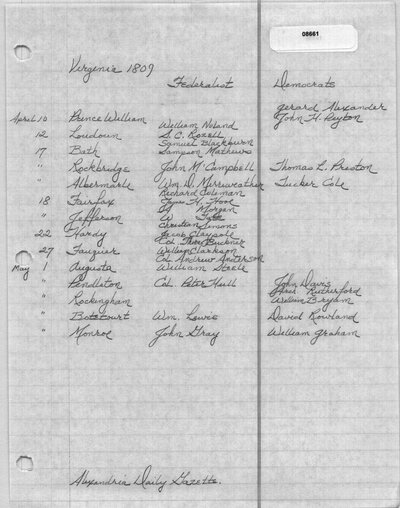 08661
Virginia 1809
Federalist Democrats
Gerard Alexander
April 10 Prince William John H. Peyton
William Noland
12 Loudoun S. C. Rozell
Samuel Blackburn
17 Bath Sampson Mathews
" Rockbridge John McCampbell Thomas L. Preston
" Albermarle Wm. D. Merriweather Tucker Cole
Richard Coleman
18 Fairfax H. Hooe
" Jefferson
Christian Simons
22 Hardy Jacob Claysole
Col. Thos. Buckner
27 Fauquier William Clarkson
Col. Andrew Anderson
May 1 Augusta William Steele
" Pendleton Col. Peter Hull John Davis
Rutherford
" Rockingham William Bryan
" Botetourt Wm. Lewis David Rowland
" Monroe John Gray William Graham
Alexandria Daily Gazette.